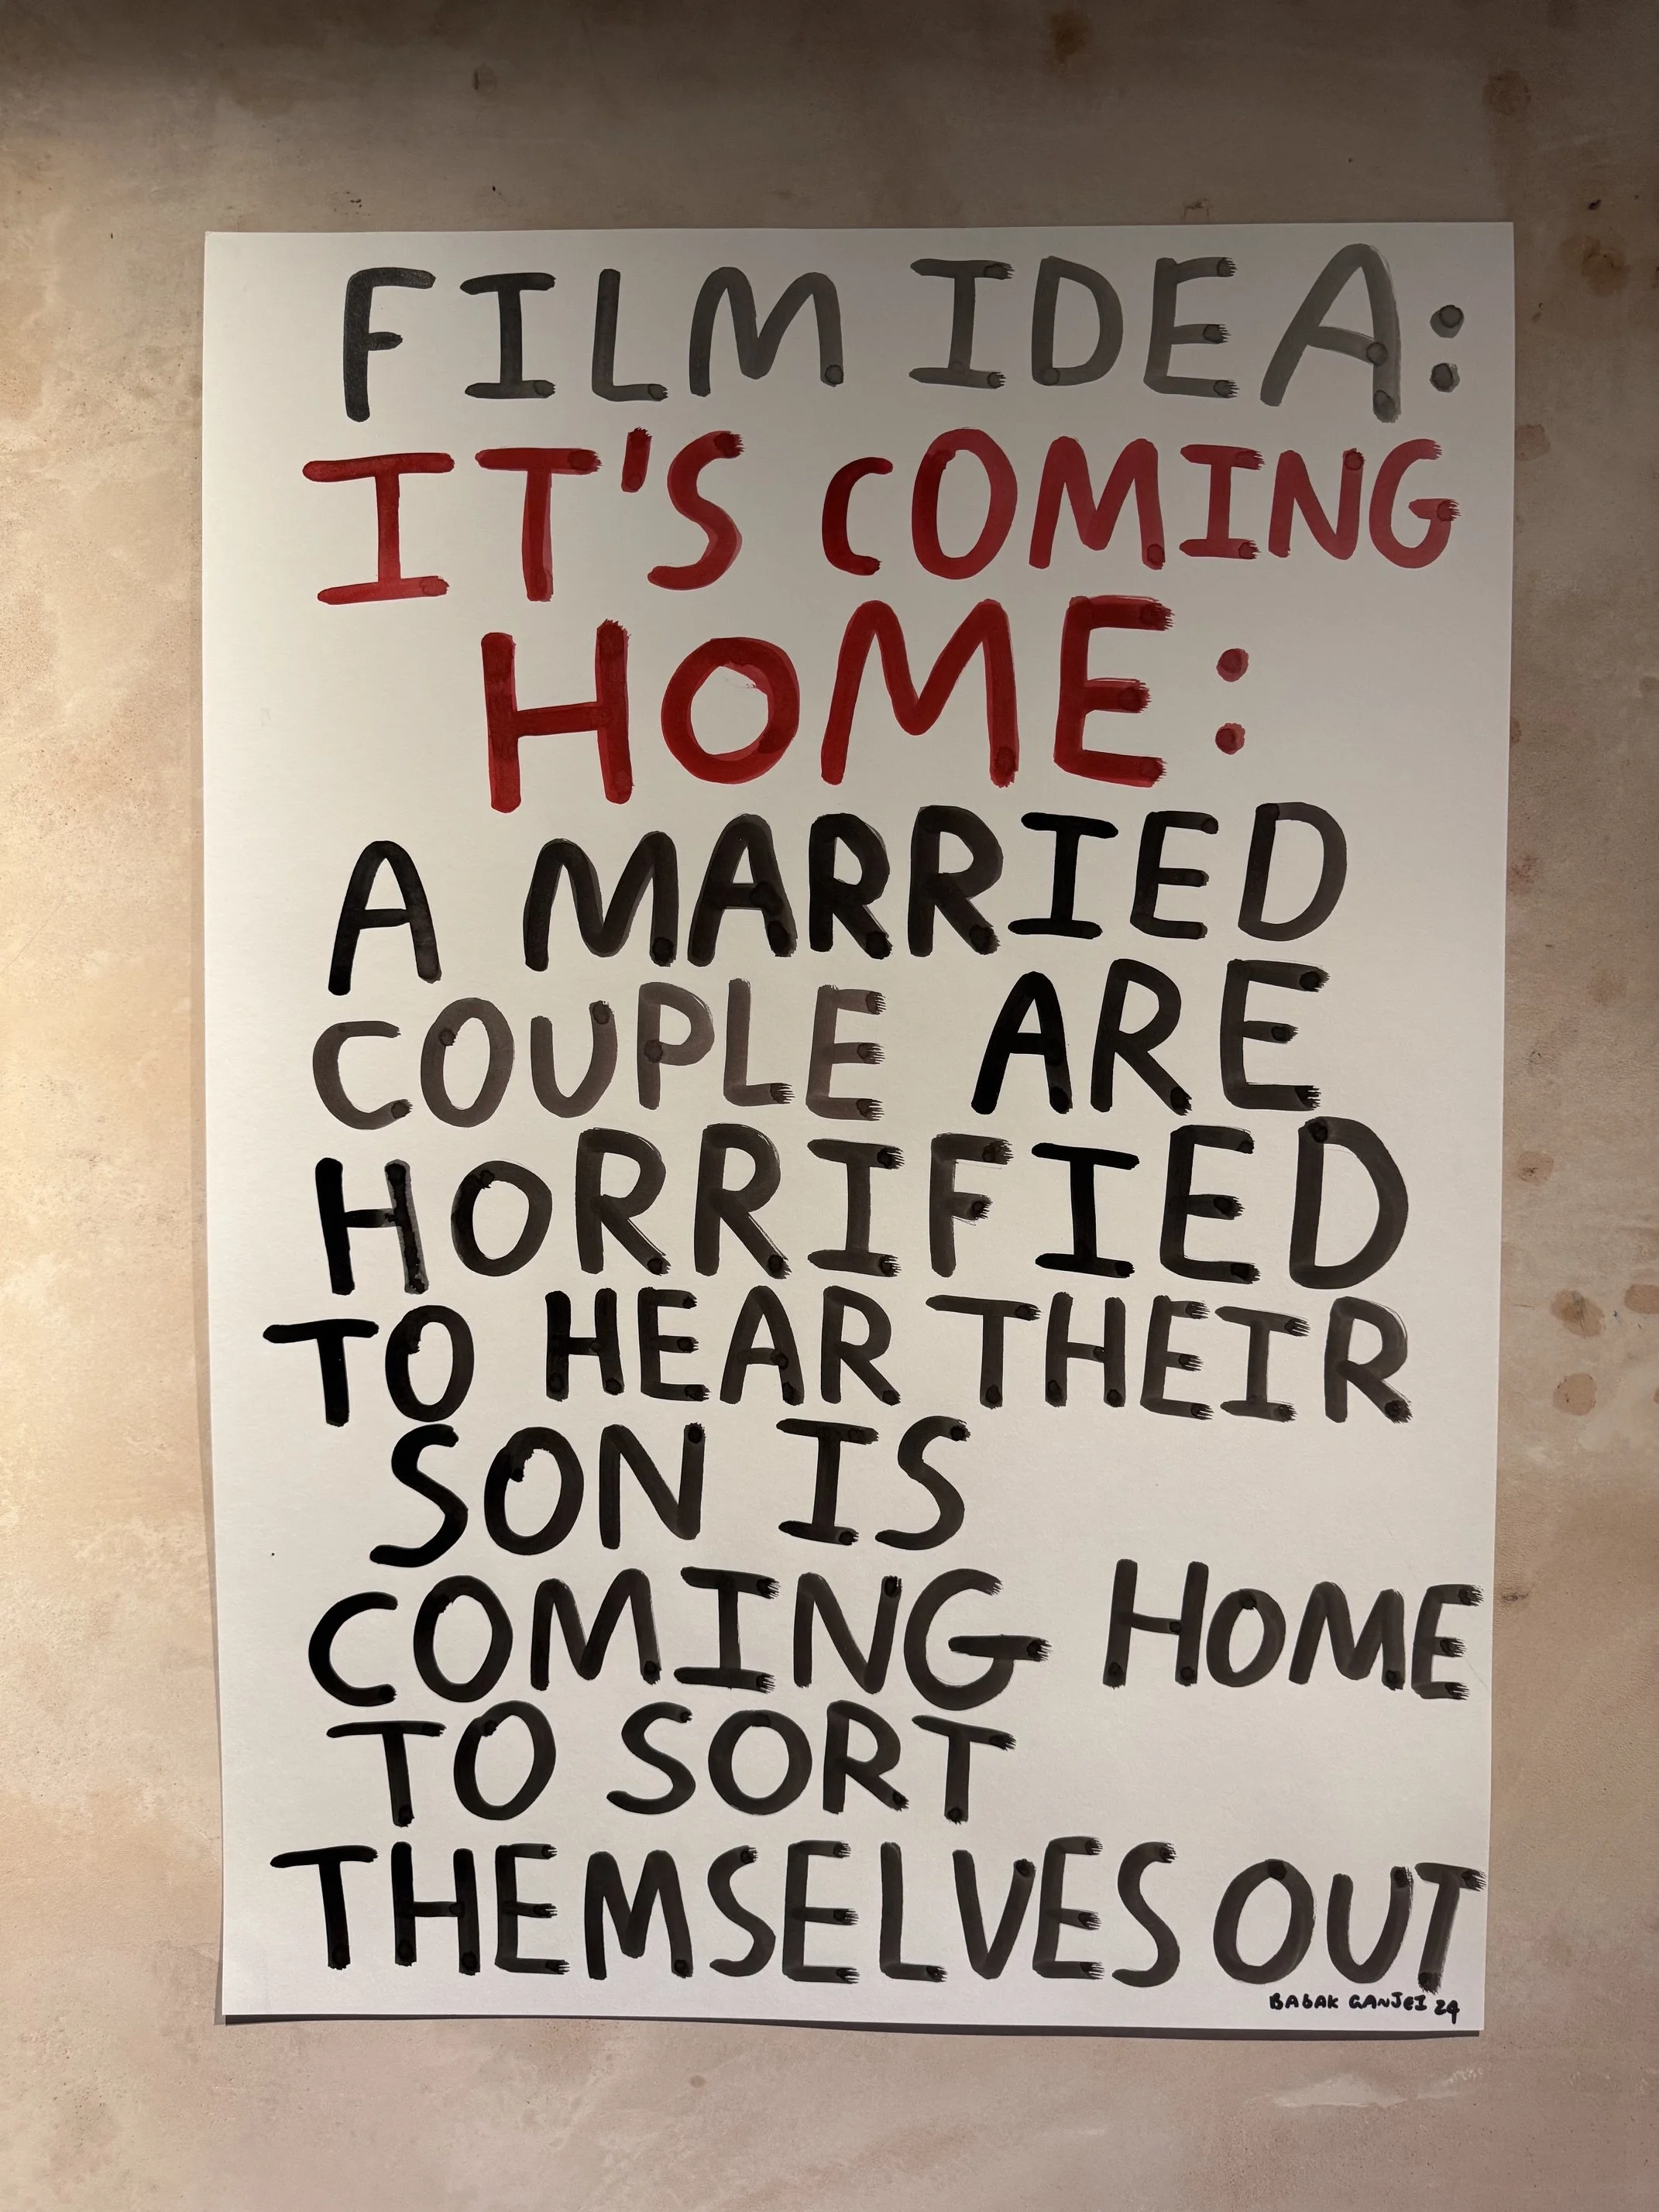 FILM IDEA:
IT'S COMING
HOME:
A MARRIED
COUPLE ARE
HORRIFIED
TO HEAR THEIR
SON IS
COMING HOME
TO SORT
THEMSELVES OUT
BABAK GANJEI 24